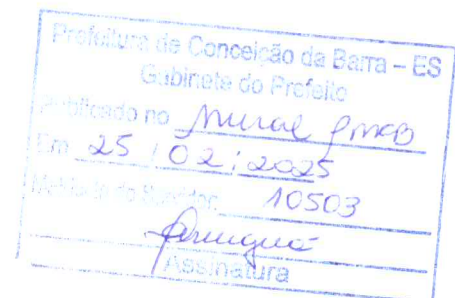 Prefeitura de Conceição da Barra – ES
Gabinete do Prefeito
Publicado no Mural PMCB
Em 25 / 02 / 2025
Matrícula do Servidor: 10503
Assinatura